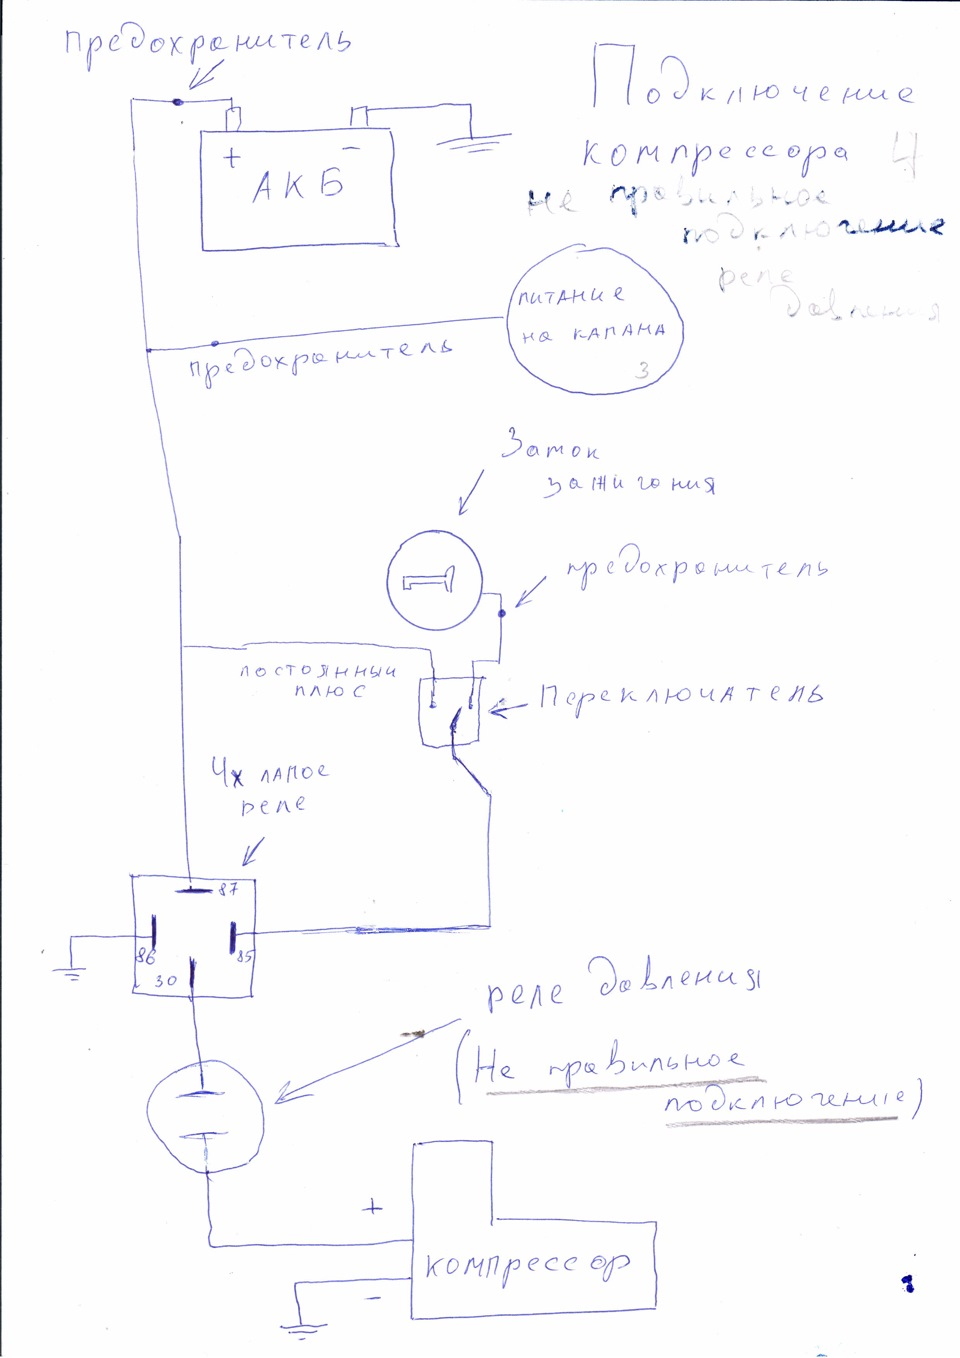 предохранитель
Подключение
компрессора 4
не правильное
подключение
реле
давления
+ -
АКБ
питание
на капана
3
предохранитель
Заток
зажигония
предохранитель
постоянный
плюс
Переключатель
4х лапое
реле
87
86
85
30
реле давления
(Не правильное
подключение)
+
компрессор
-